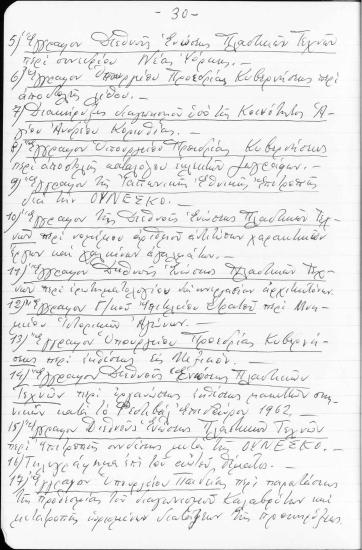 - 30 -
5) Ἔγγραφον Διεθνοῦς Ἑνώσεως Πλαστικῶν Τεχνῶν
περὶ συνεδρίου Νέας Ὑόρκης. —
6) Ἔγγραφον Ὑπουργείου Προεδρίας Κυβερνήσεως περὶ
ἀποστολῆς
7) Διακήρυξις διαγωνισμοῦ ὑπὸ τῆς Κοινότητος Ἁ-
γίου Ἀνδρέου Κορινθίας. —
8) Ἔγγραφον Ὑπουργείου Προεδρίας Κυβερνήσεως
περὶ ἀποστολῆς καταλόγου ζωγράφων. —
9) Ἔγγραφον τῆς Ἑθνικῆς Ἐπιτροπῆς
διὰ τὴν ΟΥΝΕΣΚΟ. —
10) Ἔγγραφον τῆς Διεθνοῦς Ἑνώσεως Πλαστικῶν Τεχ-
νῶν περὶ νομίμου ἀριθμοῦ ἀντιτύπων χαρακτικῶν
ἔργων καὶ ἀγαλμάτων. —
11) Ἔγγραφον Διεθνοῦς Ἑνώσεως Πλαστικῶν Τεχ-
νῶν περὶ ἐρωτηματολογίου συνεργασίαν ἀρχιτεκτόνων. —
12) Ἔγγραφον Ἐπιτελείου Στρατοῦ περὶ Μνη-
μείου Ἱστορικῶν Ἀγώνων. —
13) Ἔγγραφον Ὑπουργείου Προεδρίας Κυβερνή-
σεως περὶ ἐκθέσεως εἰς Μεξικόν. —
14) Ἔγγραφον Διεθνοῦς Ἑνώσεως Πλαστικῶν
Τεχνῶν περὶ ὀργανώσεως ἐκθέσεως μακεττῶν σκη-
νικῶν κατὰ τὸ Φεστιβὰλ Ἐπιδαύρου 1962. —
15) Ἔγγραφον Διεθνοῦς Ἑνώσεως Πλαστικῶν Τεχνῶν
περὶ ἐπιτροπῆς συνδέσεως μετὰ τῆς ΟΥΝΕΣΚΟ. —
16) Τηλεγράφημα ἐπὶ τοῦ αὐτοῦ θέματος. —
17) Ἔγγραφον Ὑπουργείου Παιδείας περὶ παρατάσεως
τῆς προθεσμίας τοῦ διαγωνισμοῦ Καλαβρύτων καὶ
μετατροπῆς ὡρισμένων διατάξεων τῆς προκηρύξεως.